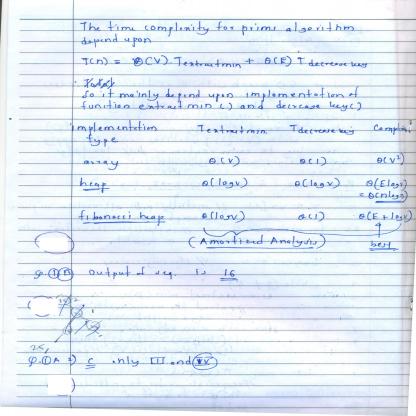 The time complexity for prims algorithm
depend upon
T(n) = θ(V) Textractmin + θ(E) T decrease key
So it mainly depend upon implementation of
function extract min() and decrease key()
implementation Textractmin Tdecrease key Complexi
type
array θ(V) θ(1) θ(V²)
heap θ(logV) θ(logV) θ(ElogV)
= θ(nlogn)
fibonacci heap θ(logV) θ(1) θ(E + logV)
(Amortized Analysis) best
Output of seq. is 16
C only III and IV